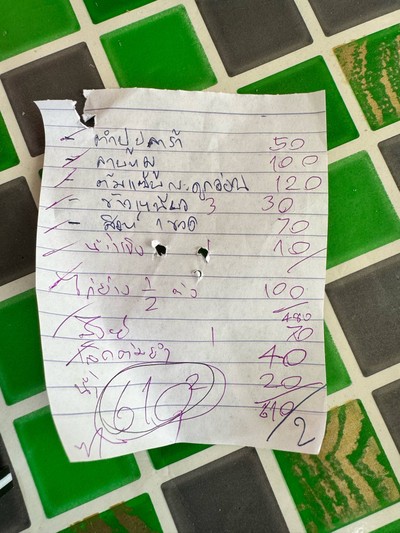 - ตำปูปลาร้า 50
- ลาบหมู 100
- ต้มแซ่บกระดูกอ่อน 120
- ข้าวเหนียว 3 30
- 1 ขวด 70
น้ำแข็ง 1 10
ไก่ย่าง 1/2 ตัว 100
480
1 70
40
น้ำ 20
610/2
610 2